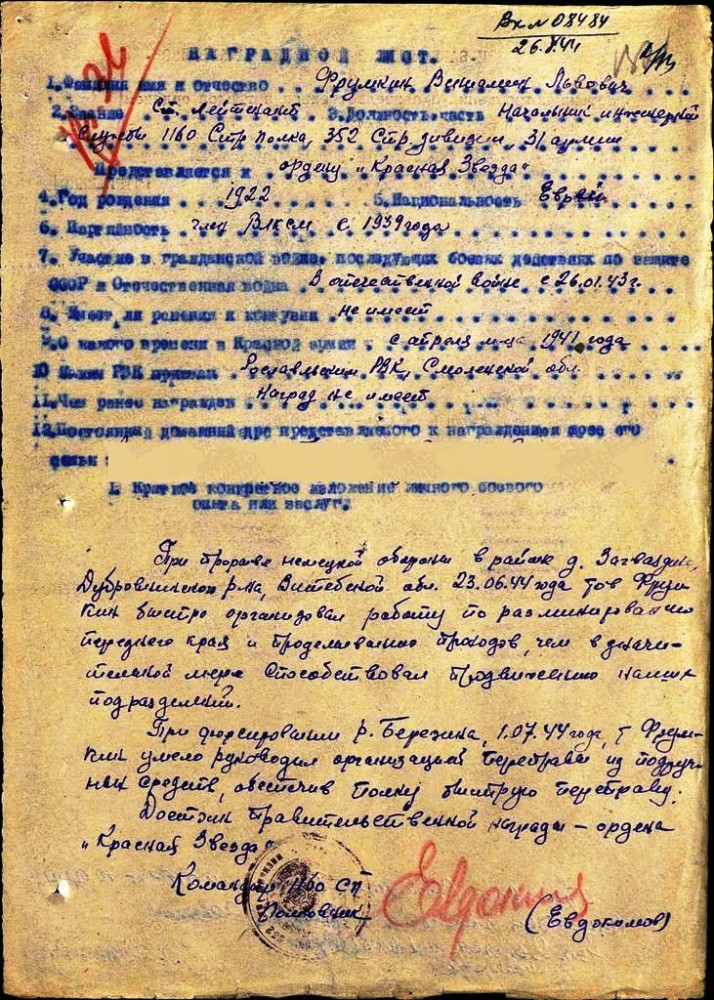 Вх № 08484
26.8.44
НАГРАДНОЙ ЛИСТ.
1. Фамилия имя и отчество Фрумкин Вениамин Львович
2. Звание Ст. Лейтенант 3. Должность, часть Начальник инженерной
Службы 1160 Стр полка, 352 Стр. дивизии, 31 армии
Представляется к ордену "Красная Звезда"
4. Год рождения 1922 5. Национальность Еврей
6. Партийность член ВЛКСМ с 1939 года
7. Участие в гражданской войне, последующих боевых действиях по защите
СССР и Отечественная война В отечественной войне с 26.01.43 г.
8. Имеет ли ранения и контузии не имеет
9. С какого времени в Красной армии с апреля м-ца 1941 года
10 Каким РВК призван Рославльским РВК, Смоленской обл.
11. Чем ранее награжден Наград не имеет
12. Постоянный домашний адрес представляемого к награждению его
семьи:
1. Краткое конкретное изложение личного боевого
опыта или заслуг.
При прорыве немецкой обороны в районе д. Загваздино,
Дубровинского р-на, Витебской обл. 23.06.44 года тов Фрум
кин быстро организовал работу по разминированию
переднего края и проделыванию проходов, чем в значи-
тельной мере способствовал продвижению наших
подразделений.
При форсировании р. Березина, 1.07.44 года, т Фрум-
кин умело руководил организацией переправы из подруч-
ных средств, обеспечив полку быструю переправу.
Достоин правительственной награды – ордена
"Красная Звезда"
Командир 1160 СП
Полковник
(Евдокимов)